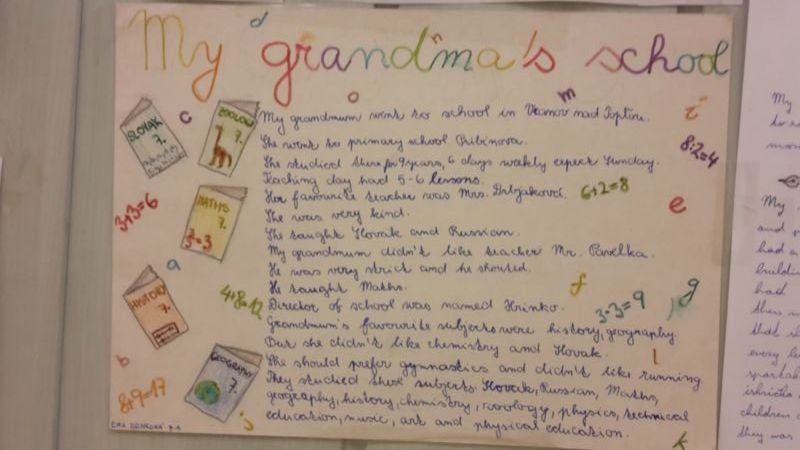 My grandma's school
My grandmum went to school in Vranov nad Topľou.
She went to primary school Pribinova.
She studied there for 9 years, 6 days weekly expect Sunday.
Teaching day had 5-6 lessons.
Her favourite teacher was Mrs.
She was very kind.
She taught Slovak and Russian.
My grandmum didn't like teacher Mr. Pavelka.
He was very strict and he shouted.
He taught Maths.
Director of school was named Hrinko.
Grandmum's favourite subjects were history, geography.
But she didn't like chemistry and Slovak.
She should prefer gymnastics and didn't like running
They studied these subjects Slovak, Russian, Maths,
geography, history, chemistry, zoology, physics, technical
education, music, art and physical education.
SLOVAK
7.
ZOOLOGY
7.
MATHS
7.
HISTORY
7.
GEOGRAPHY
7.
3+3=6
4+8=12
8+9=17
6+2=8
8:2=4
3·3=9
d
n
c
o
m
i
e
a
f
g
b
l
j
k
My
My
and
had a
building
had
every
children
they was